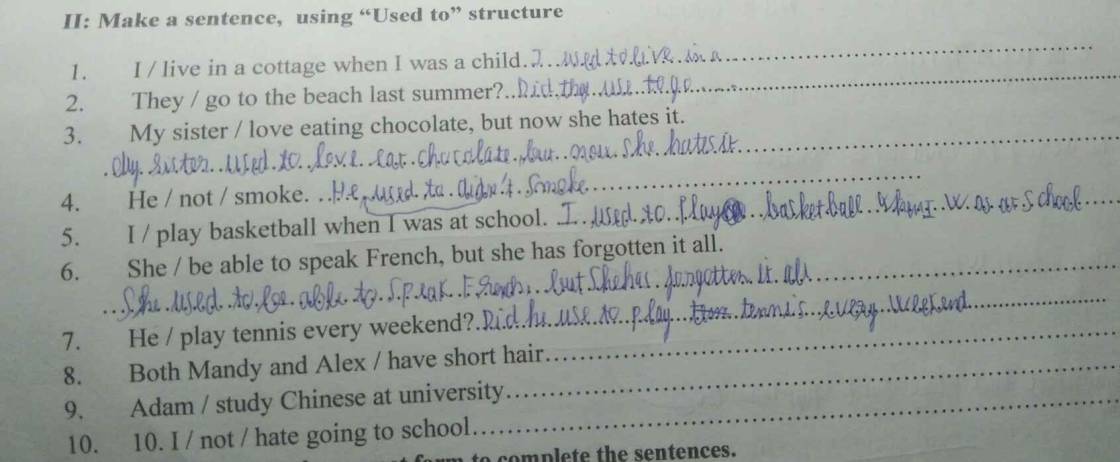 II: Make a sentence, using “Used to” structure
1. I / live in a cottage when I was a child. I used to live in a
2. They / go to the beach last summer? Did they use to go
3. My sister / love eating chocolate, but now she hates it.
My sister used to love eat chocolate, but now she hates it
4. He / not / smoke. He used to didn't smoke
5. I / play basketball when I was at school. I used to play basketball when I was at school
6. She / be able to speak French, but she has forgotten it all.
She used to be able to speak French, but she has forgotten it all
7. He / play tennis every weekend? Did he use to play tennis every weekend
8. Both Mandy and Alex / have short hair
9. Adam / study Chinese at university
10. 10. I / not / hate going to school
form to complete the sentences.